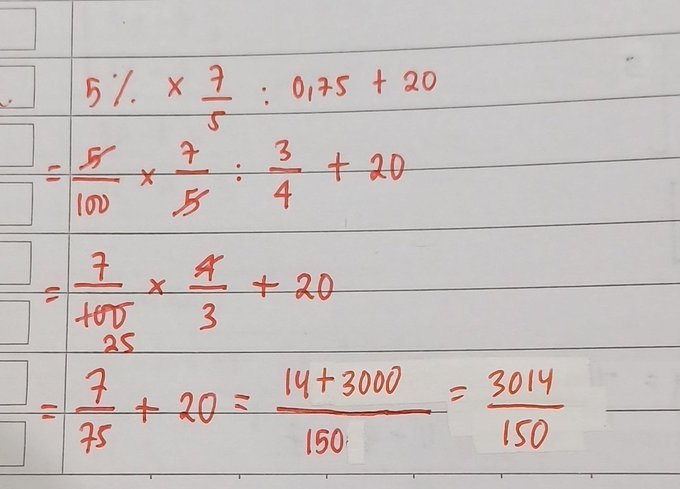 5% × 7/5 : 0,75 + 20
= 5/100 × 7/5 : 3/4 + 20
= 7/100 × 4/3 + 20
25
= 7/75 + 20 = 14+3000/150 = 3014/150